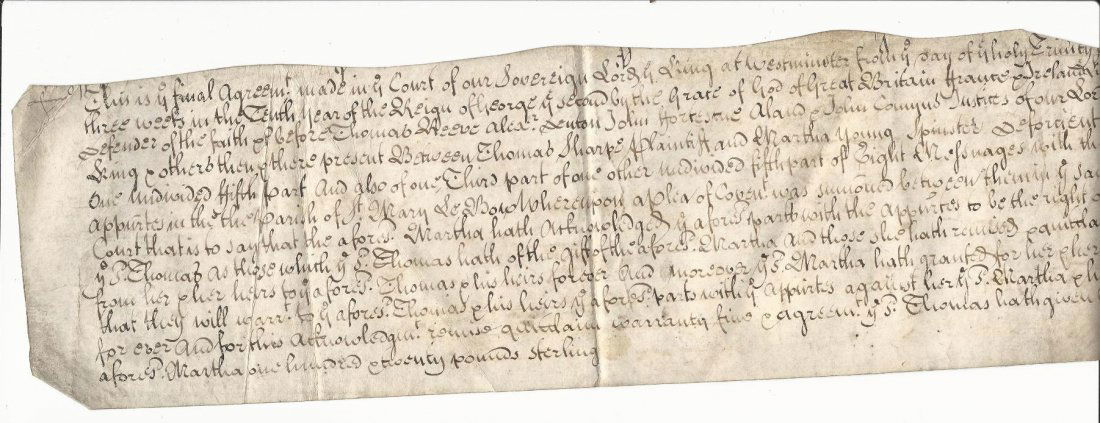 This is yͤ final Agreemᵗ. made in yͤ Court of our Sovereign Lord yͤ King at Westminster from yͤ day of yͤ holy Trinity in
three weeks in the Tenth Year of the Reign of George yͤ second by the Grace of God of Great Britain France & Ireland K
Defender of the Faith &c before Thomas Reeve Alexʳ. Denton John Fortescue Aland & John Comyns Justices of our Lor
King & others then & there present Between Thomas Sharpe Plaintiff and Martha Young Spinster Deforcient
One undivided fifth part And also of one Third part of one other undivided fifth part of Eight Messuages with the
Appurtes in the the Parish of Sᵗ. Mary Le Bow Whereupon a plea of Covenᵗ. was sumoned between them in yͤ sai
Court that is to say that the aforesᵈ. Martha hath Acknowledged yͤ aforesᵈ. parts with the Appurtes to be the right o
yͤ sᵈ. Thomas as those which yͤ sᵈ. Thomas hath of the Gift of the aforesᵈ. Martha And those she hath remised & quitclai
from her & her heirs to yͤ aforesᵈ. Thomas & his heirs forever And moreover yͤ sᵈ. Martha hath granted for her & her
that they will warrᵗ. to yͤ aforesᵈ. Thomas & his heirs yͤ aforesᵈ. parts with yͤ Appurtes against her yͤ sᵈ. Martha & h
for ever And for this Acknowledgmᵗ. remise quitclaim warranty fine & agreemᵗ. yͤ sᵈ. Thomas hath given
aforesᵈ. Martha one hundred & twenty pounds sterling